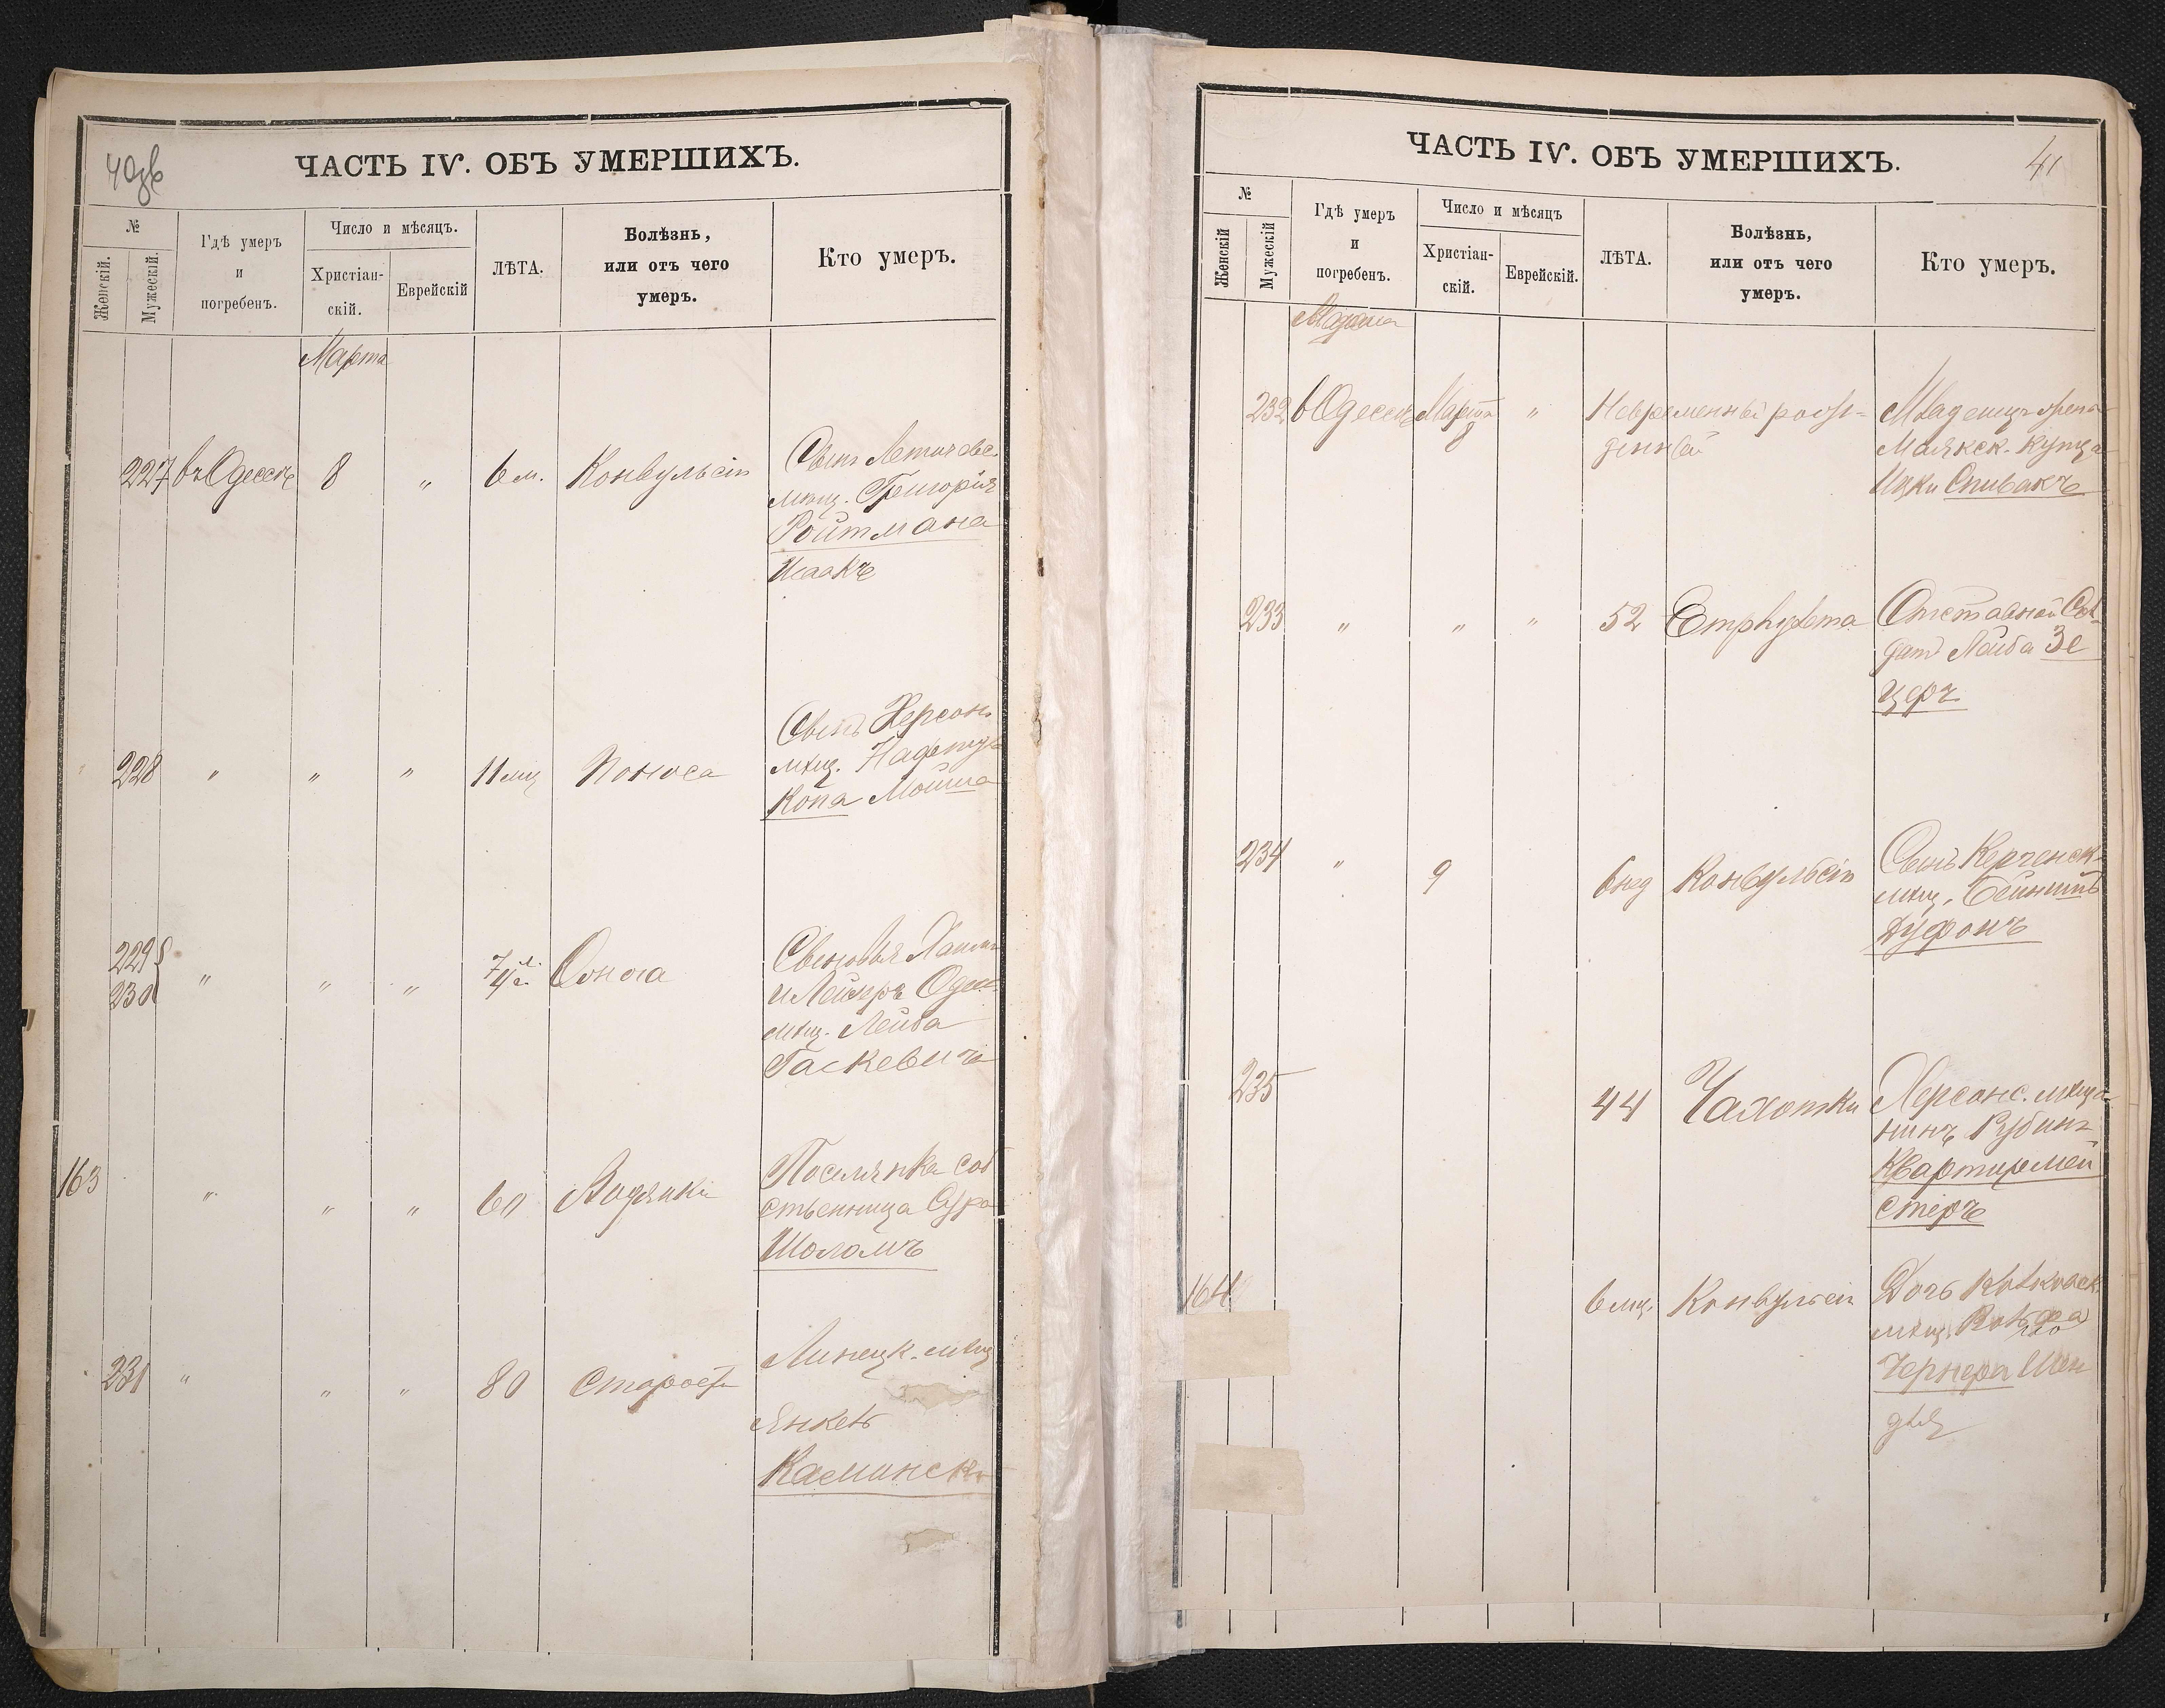 40зв
ЧАСТЬ IV. ОБЪ УМЕРШИХЪ.
№
Женскій.
Мужескій.
Гдѣ умеръ
и
погребенъ.
Число и мѣсяцъ.
Христіан-
скій.
Еврейскій
ЛѢТА.
Болѣзнь,
или отъ чего
умеръ.
Кто умеръ.
Марта
227 въ Одессѣ 8 " 6 м. Конвульсіи
Сынъ
мѣщ. Григорія
Ройтмана
Исаакъ
228 " " " 11 мц Поноса
Сынъ Херсон.
мѣщ.
Копа Мойша
229
230 " " "
7 л.
4 г. Оспы
Сыновья Хаим
и Лейзеръ Одес.
мѣщ. Лейба
Гаскевичъ
163 " " " 60 Водянки
Поселянка соб
ственница Сура
Шоломъ
231 " " " 80 Старость
Липецк. мѣщ
Янкель
Каминскі
ЧАСТЬ IV. ОБЪ УМЕРШИХЪ.
41
№
Женскій
Мужескій
Гдѣ умеръ
и
погребенъ.
Число и мѣсяцъ
Христіан-
скій.
Еврейскій.
ЛѢТА.
Болѣзнь,
или отъ чего
умеръ.
Кто умеръ.
232 въ Одессѣ Марта "
8
Невременный рож-
денный
Младенецъ
Маякск. купца
Ицки Спивакъ
233 " " " 52 Emphysema
Отставной Сол-
датъ Лейба Зе
церъ
234 " 9 6 нед Конвульсіи
Сынъ Керченск.
мѣщ.
Дуфонъ
235 44 Чахотки
Херсонс. мѣща-
нинъ Рубинъ
Квартирмей
стеръ
164 6 мц. Конвульсіи
Дочь
мѣщ.
Чернера Шен
дѣл